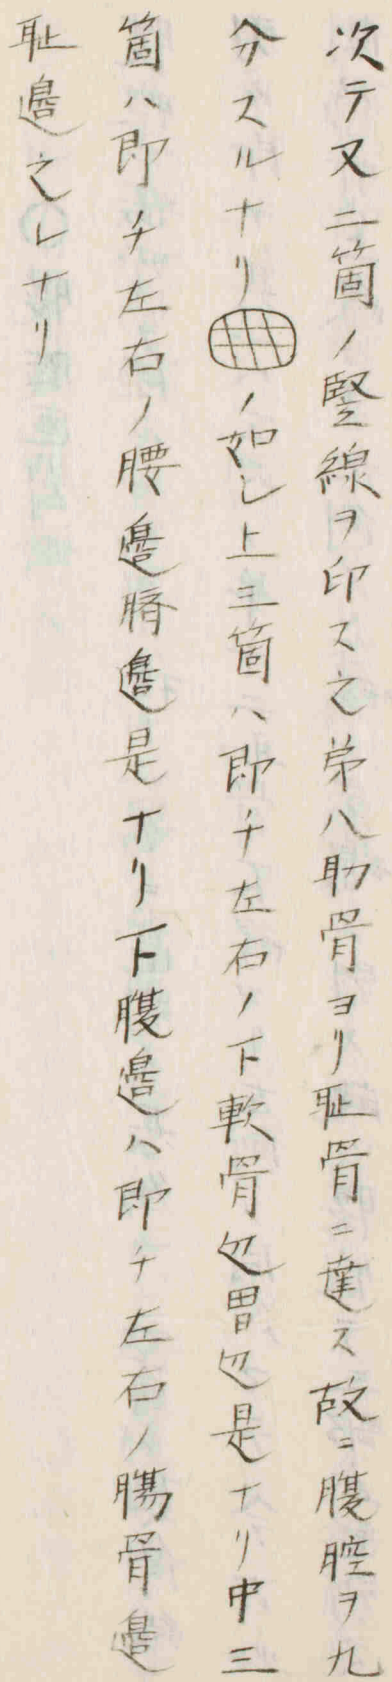 次テ又二箇ノ竪線ヲ印ス之第八肋骨ヨリ耻骨ニ達ス故ニ腹腔ヲ九
分スルナリ ノ如シ上三箇ハ即チ左右ノ下軟骨辺胃辺是ナリ中三
箇ハ即チ左右ノ腰邉臍邉是ナリ下腹邉ハ即チ左右ノ腸骨邉
耻邉之レナリ